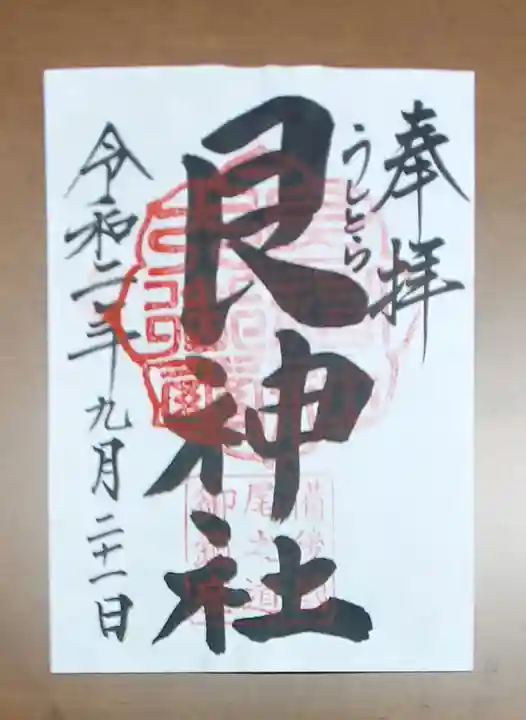 奉拝
うしとら
艮神社
令和二年九月二十一日
尾之道